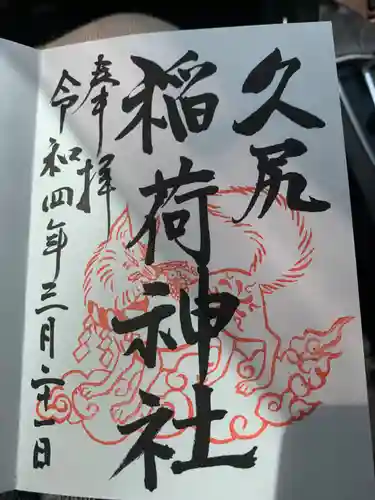 久尻
稲荷神社
奉拝
令和四年三月二十一日